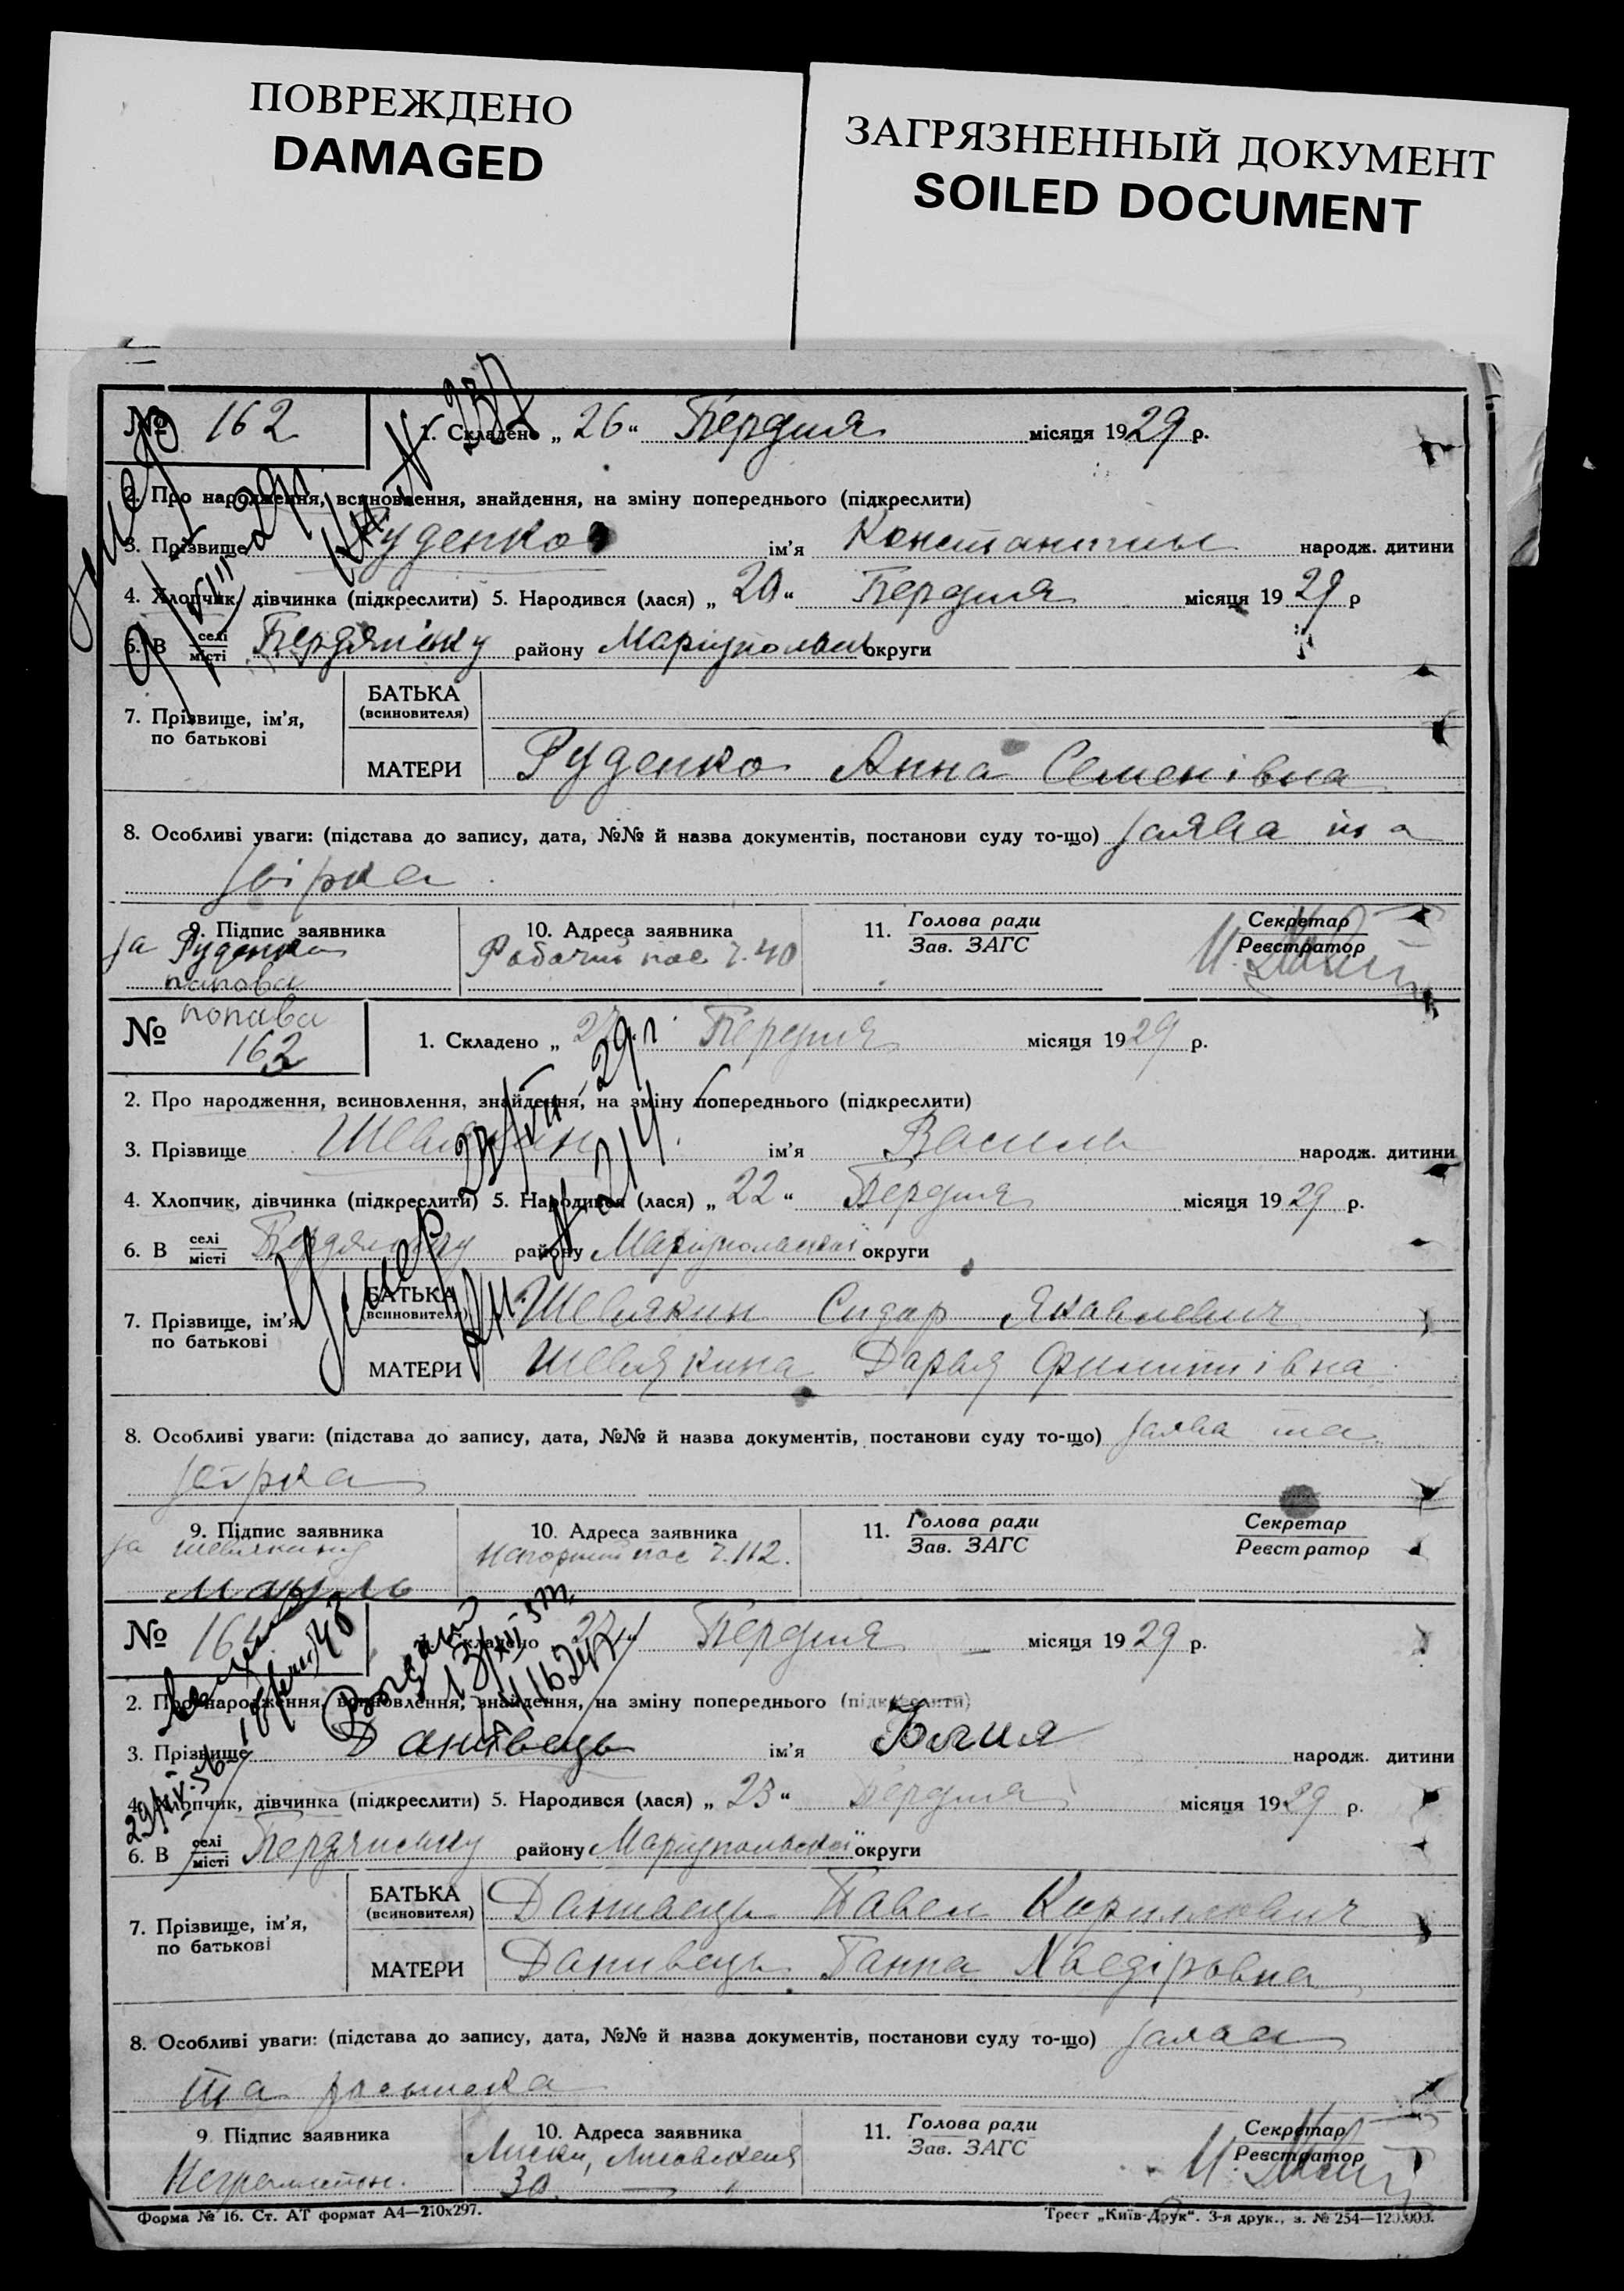 ПОВРЕЖДЕНО
DAMAGED
ЗАГРЯЗНЕННЫЙ ДОКУМЕНТ
SOILED DOCUMENT
№ 162
1. Складено „ 26 “ Бердня місяця 1929 р.
2. Про народження, всиновлення, знайдення, на зміну попереднього (підкреслити)
3. Прізвище Руденко ім’я Константин народж. дитини
4. Хлопчик, дівчинка (підкреслити) 5. Народився (лася) „ 20 “ Бердня місяця 1929 р
6. В селі місті Бердянську району Маріупольськ округи
7. Прізвище, ім’я, по батькові
БАТЬКА (всиновителя)
МАТЕРИ Руденко Анна Семенівна
8. Особливі уваги: (підстава до запису, дата, №№ й назва документів, постанови суду то-що) заява та
звірка
9. Підпис заявника 10. Адреса заявника 11. Голова ради Зав. ЗАГС Секретар Реєстратор
за Руденка Рабочий пос ч. 40
попова
попова
№ 163
1. Складено „ 27 “ Бердня місяця 1929 р.
2. Про народження, всиновлення, знайдення, на зміну попереднього (підкреслити)
3. Прізвище Шевлякин ім’я Василь народж. дитини
4. Хлопчик, дівчинка (підкреслити) 5. Народився (лася) „ 22 “ Бердня місяця 1929 р.
6. В селі місті Бердянську району Маріупольської округи
Умер 23/VII-29 р.
Кн. № 214
7. Прізвище, ім’я по батькові
БАТЬКА (всиновителя) Шевлякин Сидар Якавлевич
МАТЕРИ Шевлякина Дарья Филипівна
8. Особливі уваги: (підстава до запису, дата, №№ й назва документів, постанови суду то-що) заява та
звірка
9. Підпис заявника 10. Адреса заявника 11. Голова ради Зав. ЗАГС Секретар Реєстратор
за Шевлякину Нагорний пос ч. 112.
№ 164
1. Складено „ 27 “ Бердня місяця 1929 р.
2. Про народження, всиновлення, знайдення, на зміну попереднього (підкреслити)
3. Прізвище Данивець ім’я Юлия народж. дитини
4. Хлопчик, дівчинка (підкреслити) 5. Народився (лася) „ 23 “ Бердня місяця 1929 р.
6. В селі місті Бердянську району Маріупольської округи
7. Прізвище, ім’я, по батькові
БАТЬКА (всиновителя) Данивець Павел Кирилович
МАТЕРИ Данивець Ганна Хведіровна
8. Особливі уваги: (підстава до запису, дата, №№ й назва документів, постанови суду то-що) заява
та
9 Підпис заявника 10. Адреса заявника 11. Голова ради Зав. ЗАГС Секретар Реєстратор
Неграмотен. Лиски,
30
Форма № 16. Ст. АТ формат А4—210х297. Трест „Київ-Друк“. 3-я друк., з. № 254—120.000.